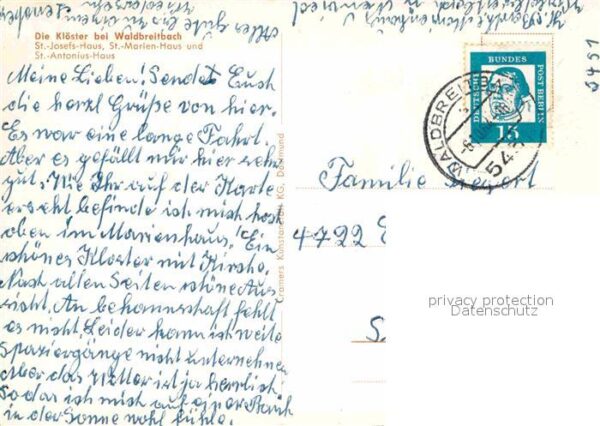 Die Klöster bei Waldbreitbach
St.-Josefs-Haus, St.-Marien-Haus und
St.-Antonius-Haus
Meine Lieben! Sende Euch
die herzl Grüße von hier.
Es war eine lange Fahrt.
Aber es gefällt mir hier sehr
gut. Wie Ihr auf der Karte
erseht befinde ich mich hoch
oben im Marienhaus. Ein
schönes Kloster mit Kirche.
Nach allen Seiten schöne Aus
sicht. An bekanntschaft fehlt
es nicht. Leider kann ich weite
Spaziergänge nicht unternehmen
Aber das Wetter ist ja herrlich
So das ich mich auf einer Bank
in der Sonne wohl fühle.
Alles Gute
Wiedersehn
Cramers Kunstanstalt KG, Dortmund
DEUTSCHE BUNDES POST BERLIN
15
WALDBREITBACH
545
5451
Familie
4722
privacy protection
Datenschutz